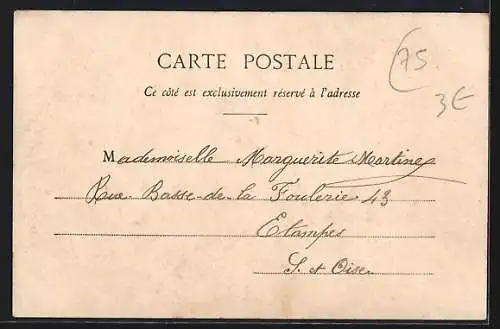 CARTE POSTALE
75
3€
Ce côté est exclusivement réservé à l'adresse
Mademoiselle Marguerite Martinez
Rue Basse-de-la Foulerie 43
Etampes
S. et Oise.